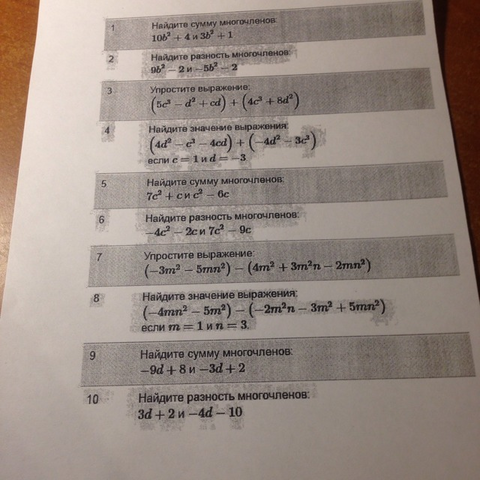 1
Найдите сумму многочленов:
10b² + 4 и 3b² + 1
2
Найдите разность многочленов:
9b² − 2 и −5b² − 2
3
Упростите выражение:
(5c³ − d² + cd) + (4c³ + 8d²)
4
Найдите значение выражения:
(4d² − c³ − 4cd) + (−4d² − 3c³)
если c = 1 и d = −3
5
Найдите сумму многочленов:
7c² + c и c² − 6c
6
Найдите разность многочленов:
−4c² − 2c и 7c² − 9c
7
Упростите выражение:
(−3m² − 5mn²) − (4m² + 3m²n − 2mn²)
8
Найдите значение выражения:
(−4mn² − 5m²) − (−2m²n − 3m² + 5mn²)
если m = 1 и n = 3.
9
Найдите сумму многочленов:
−9d + 8 и −3d + 2
10
Найдите разность многочленов:
3d + 2 и −4d − 10